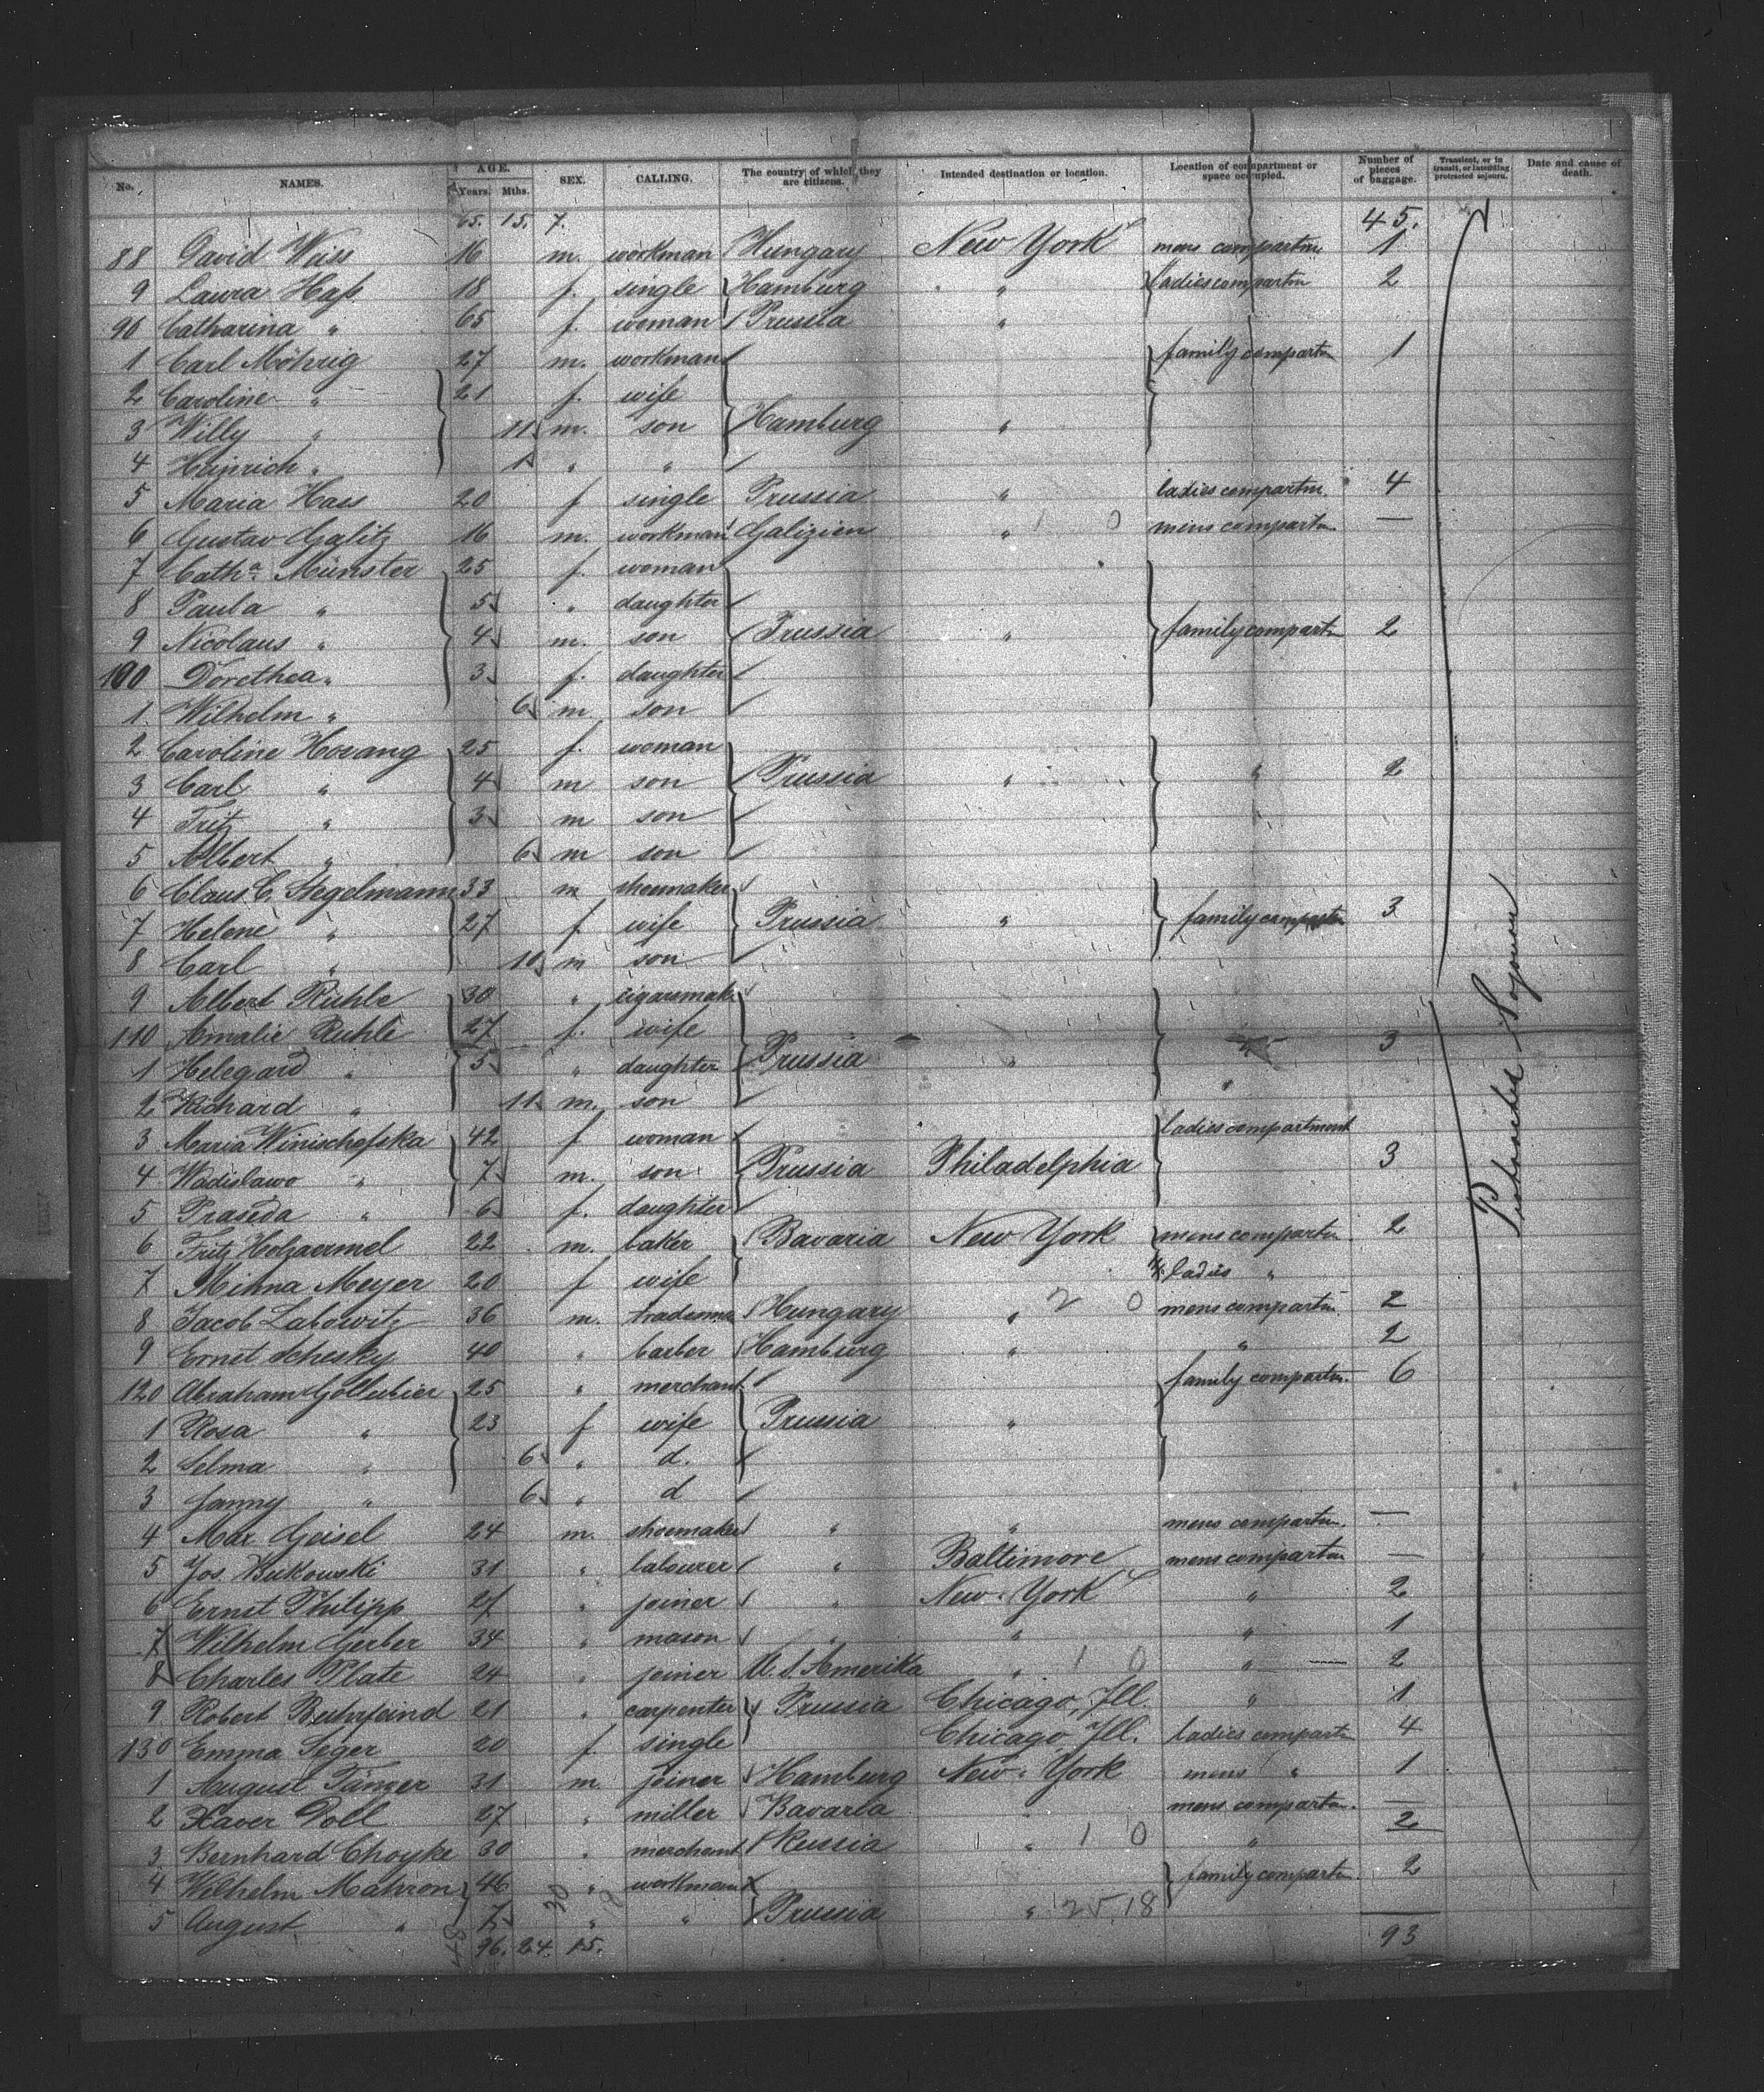 No. NAMES. AGE. Years. Mths. SEX. CALLING. The country of which they are citizens. Intended destination or location. Location of compartment or space occupied. Number of pieces of baggage. Transient, or in transit, or intending protracted sojourn. Date and cause of death.
65. 15. 7. 45.
88 David Weiss 16 m. workman Hungary New York mens compartm 1
9 Laura Haß 18 f. single Hamburg " ladies compartm 2
90 Catharina " 65 f. woman Prussia "
1 Carl Möhrig 27 m. workman family compartm 1
2 Caroline " 21 f. wife
3 Willy " 11 m. son Hamburg "
4 Heinrich " 1 " "
5 Maria Haes 20 f single Prussia " ladies compartm. 4
6 Gustav Galitz 16 m. workman Galizien " 1 0 mens compartm —
7 Catha. Münster 25 f. woman
8 Paula " 5 " daughter
9 Nicolaus " 4 m. son Prussia " family compartm 2
100 Dorethea " 3 f. daughter
1 Wilhelm " 6 m son
2 Caroline Horang 25 f. woman
3 Carl " 4 m son Prussia " " 2
4 Fritz " 3 m son
5 Albert " 6 m son
6 Claus C. Stegelmann 33 m shoemaker
7 Helene " 27 f wife Prussia " family compartm 3
8 Carl " 10 m son
9 Albert Rühle 30 " cigaremak
110 Amalie Ruhle 27 f. wife " 3
1 Helegard " 5 " daughter Prussia "
2 Richard " 11 m. son "
3 Maria Winischefska 42 f woman ladies compartment
4 Wadislawo " 7 m. son Prussia Philadelphia 3
5 Praseda " 6 f. daughter
6 Fritz Holzaermel 22 m. baker Bavaria New York mens compartm 2
7 Minna Meyer 20 f wife ladies "
8 Jacob Labowitz 36 m. tradesman Hungary " 2 0 mens compartm 2
9 Ernst Schesky 40 " barber Hamburg " " 2
120 Abraham Gollubier 25 " merchant family compartm. 6
1 Rosa " 23 f wife Prussia "
2 Selma " 6 " d.
3 Janny " 6 " d
4 Max Geisel 24 m. shoemaker " " mens compartm. —
5 Jos. Bukowski 31 " labourer " Baltimore mens compartm —
6 Ernst Philipp " joiner " New York " 2
7 Wilhelm Gerber 34 " mason " " " 1
8 Charles Plate 24 " joiner U. S. Amerika " 1 0 " 2
9 Robert Buhrfeind 21 " carpenter Prussia Chicago, Ill. " 1
130 Emma Seger 20 f. single Chicago, Ill. ladies compartm 4
1 August Tänzer 31 m joiner Hamburg New York mens " 1
2 Xaver Doll 27 " miller Bavaria " mens compartm. —
3 Bernhard Choyke 30 " merchant Russia " 1 0 " 2
4 Wilhelm Mahron 46 " workman family compartm. 2
5 August " 7 " " Prussia " 25.18
96. 24. 15. 93
Protracted Sojourn